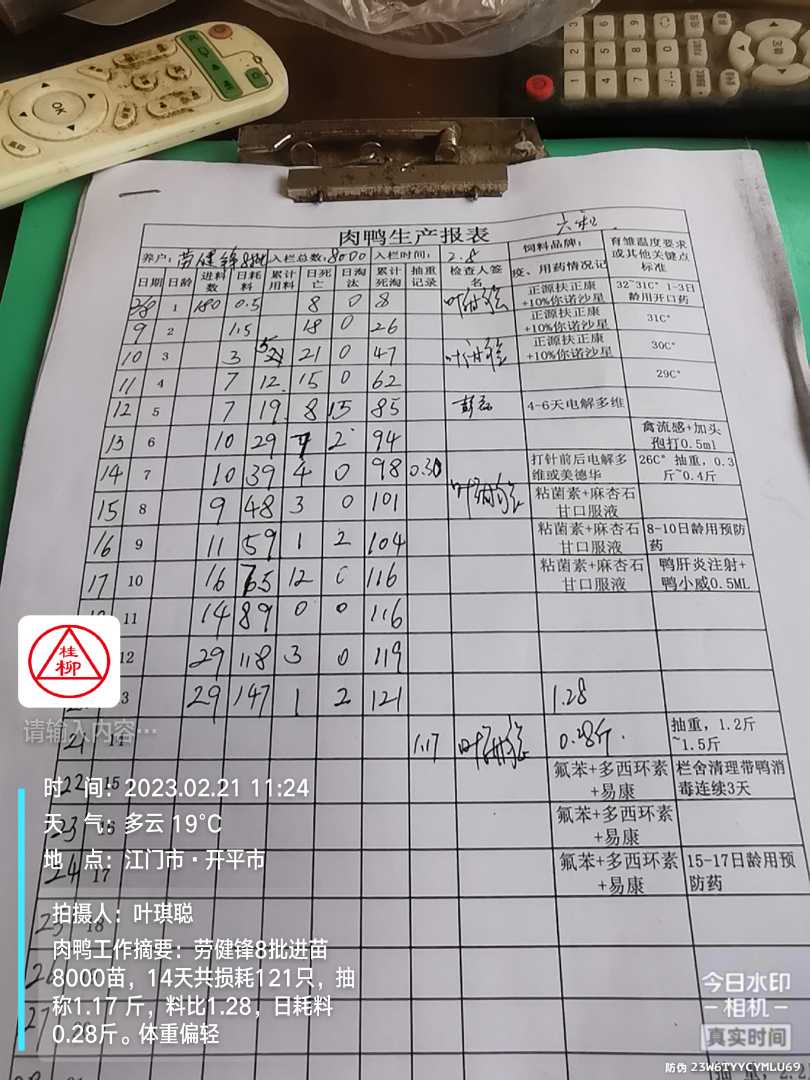 肉鸭生产报表
六和
养户：劳健锋8批 入栏总数：8000 入栏时间：2.8 饲料品牌： 育雏温度要求或其他关键点标准
日期 日龄 进料数 日耗料 累计用料 日死亡 日淘汰 累计死淘 抽重记录 检查人签名 疫、用药情况记
2/8 1 180 0.5 8 0 8 正源扶正康+10%你诺沙星 32~31C° 1-3日龄用开口药
9 2 1.5 18 0 26 正源扶正康+10%你诺沙星 31C°
10 3 3 5 21 0 47 正源扶正康+10%你诺沙星 30C°
11 4 7 12 15 0 62 29C°
12 5 7 19 8 15 85 4-6天电解多维
13 6 10 29 7 2 94 禽流感+加头孢打0.5ml
14 7 10 39 4 0 98 0.30 打针前后电解多维或美德华 26C° 抽重，0.3斤~0.4斤
15 8 9 48 3 0 101 粘菌素+麻杏石甘口服液
16 9 11 59 1 2 104 粘菌素+麻杏石甘口服液 8-10日龄用预防药
17 10 16 75 12 0 116 粘菌素+麻杏石甘口服液 鸭肝炎注射+鸭小威0.5ML
11 14 89 0 0 116
12 29 118 3 0 119
3 29 147 1 2 121 1.28
21 14 1.17 0.28斤. 抽重，1.2斤~1.5斤
22 15 氟苯+多西环素+易康 栏舍清理带鸭消毒连续3天
23 16 氟苯+多西环素+易康
24 17 氟苯+多西环素+易康 15-17日龄用预防药
25 18
26
27
桂柳
请输入内容…
时 间：2023.02.21 11:24
天 气：多云 19°C
地 点：江门市·开平市
拍摄人：叶琪聪
肉鸭工作摘要：劳健锋8批进苗
8000苗，14天共损耗121只，抽
称1.17 斤，料比1.28，日耗料
0.28斤。体重偏轻
今日水印
相机
真实时间
防伪 23W6TYYCYMLU69
OK